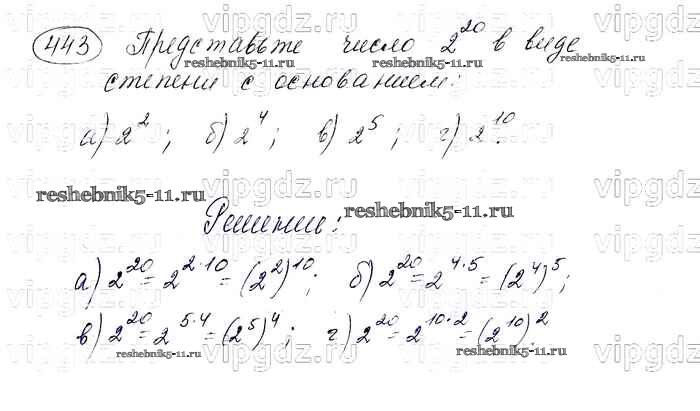 443 Представьте число 2^20 в виде
степени с основанием:
а) 2^2; б) 2^4; в) 2^5; г) 2^10.
Решение:
а) 2^20 = 2^2·10 = (2^2)^10; б) 2^20 = 2^4·5 = (2^4)^5;
в) 2^20 = 2^5·4 = (2^5)^4; г) 2^20 = 2^10·2 = (2^10)^2.
vipgdz.ru
reshebnik5-11.ru